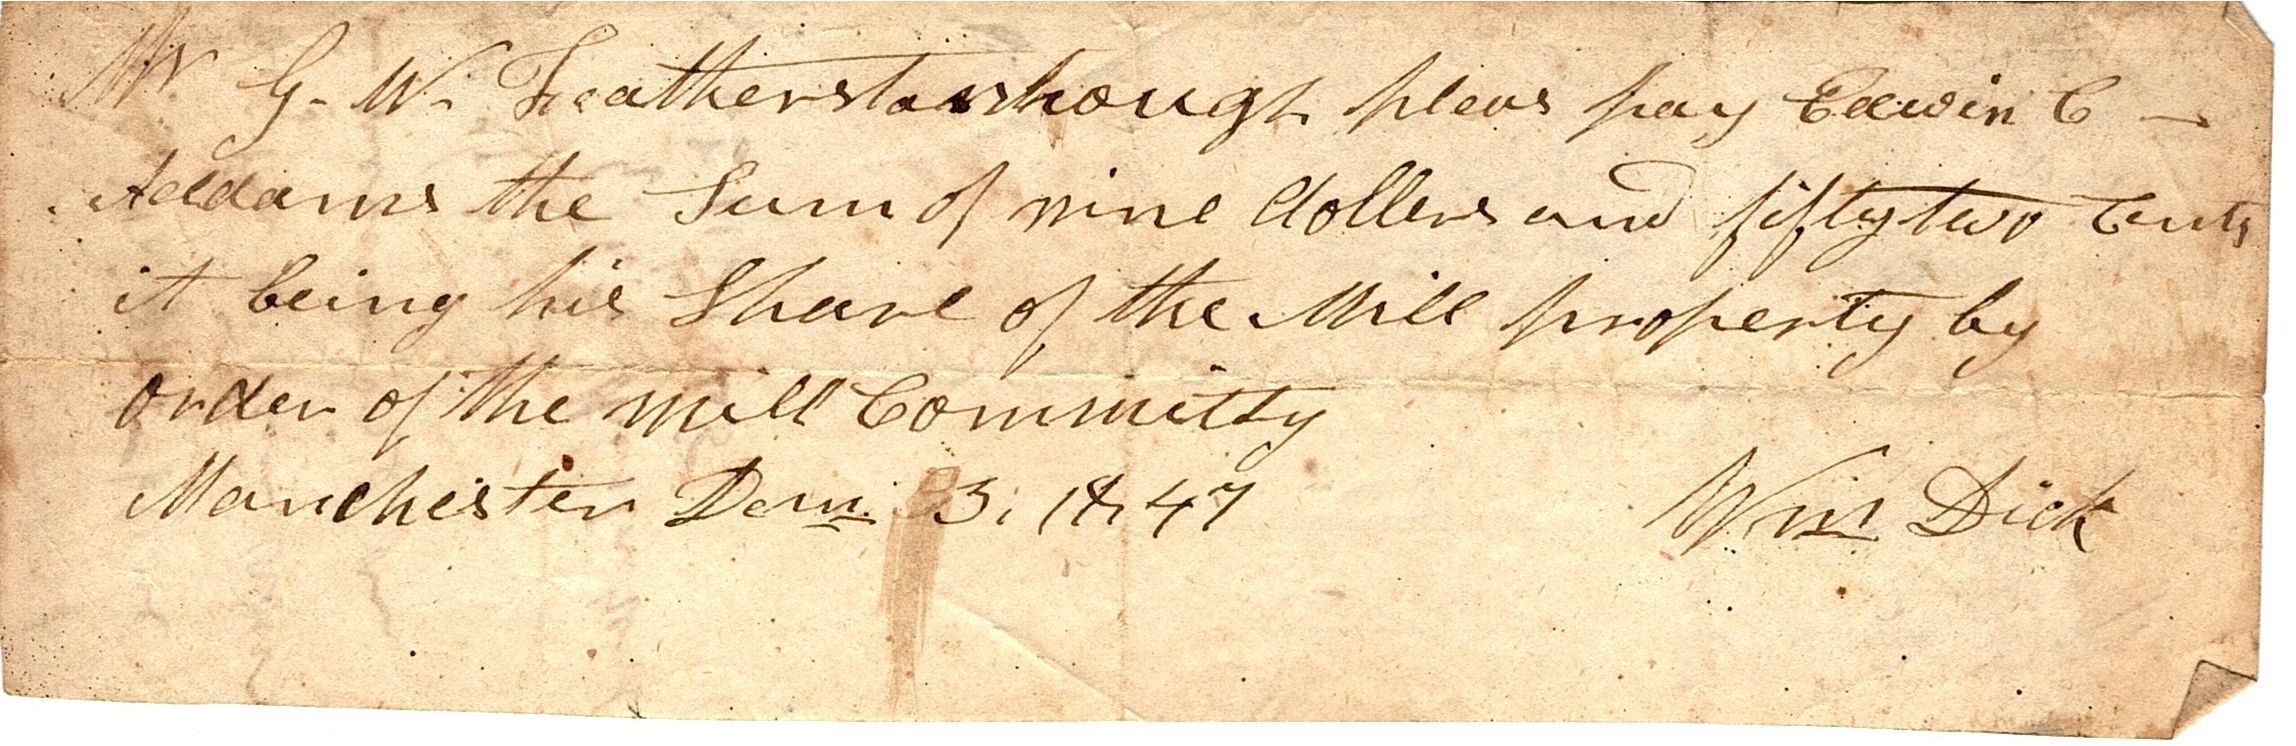 Mr G. W. Featherstonhough pleas pay Edwin C -
Addams the Sum of nine dollers and fifty two Cents
it being his Share of the Mill property by
order of the mill Committy
Manchester Dem 3, 1847 Wm Dick